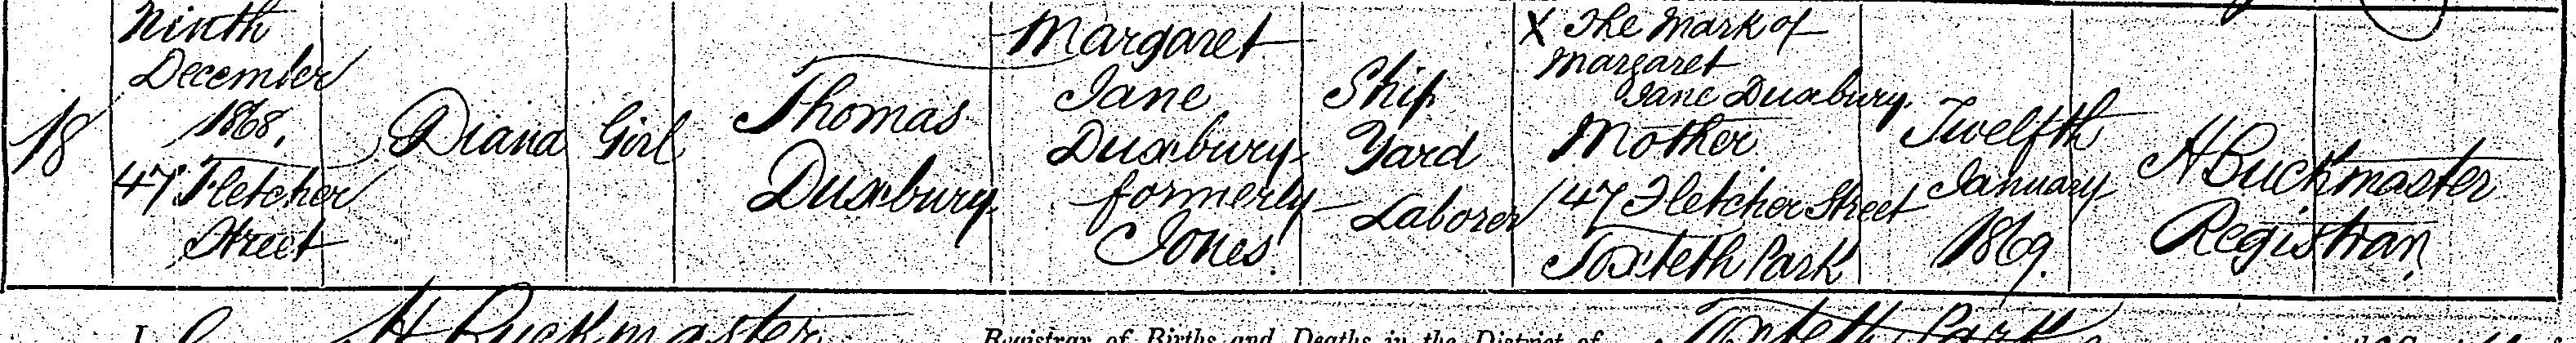 18
Ninth
December
1868.
47 Fletcher
Street
Diana
Girl
Thomas
Duxbury
Margaret
Jane
Duxbury
formerly
Jones
Ship
Yard
Laborer
X The Mark of
Margaret
Jane Duxbury.
Mother
47 Fletcher Street
Toxteth Park
Twelfth
January
1869.
H Buckmaster
Registrar.
H Buckmaster
Registrar of Births and Deaths in the District of
Toxteth Park